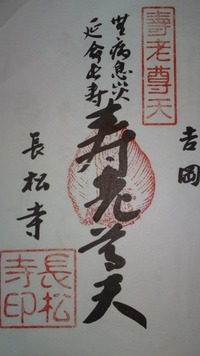 壽老尊天
吉岡
無病息災
延命長寿
寿老尊天
長松寺
長松寺印